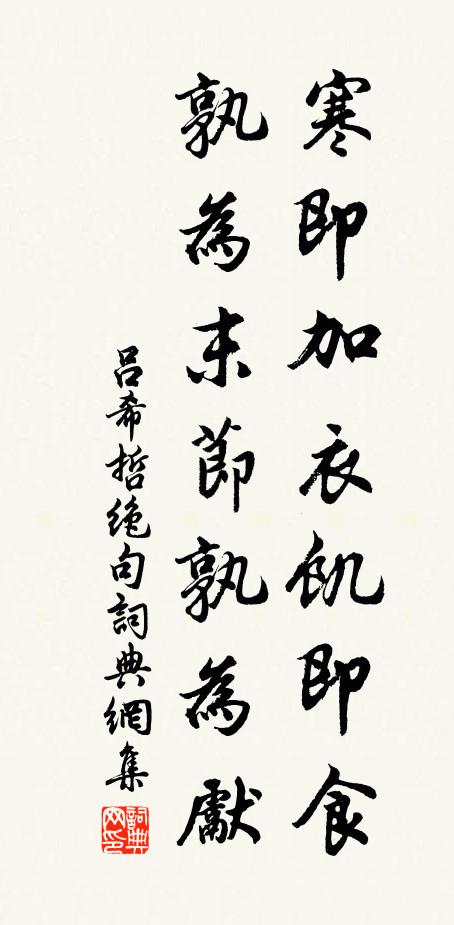 寒即加衣飢即食
孰為末節孰為獻
呂希哲絕句詞典網集
詞典
网印